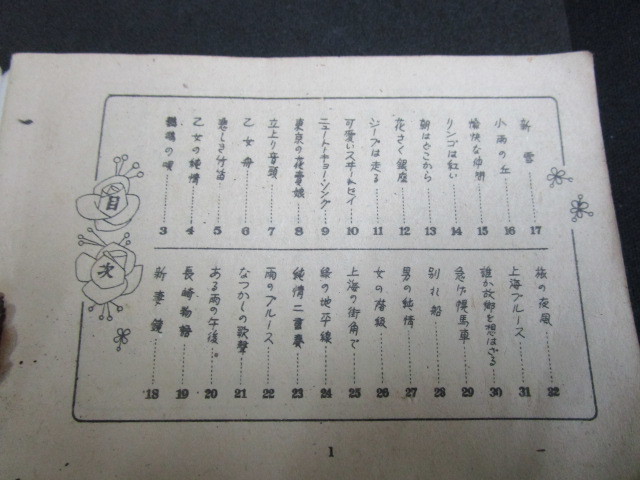 目次
の唄………3
乙女の純情………4
悲しき竹笛………5
乙女舟………6
立上り音頭………7
東京の花賣娘………8
ニュー・トーキョー・ソング………9
可愛いスヰートピイ………10
ジープは走る………11
花さく銀座………12
朝はどこから………13
リンゴは紅い………14
愉快な仲間………15
小雨の丘………16
新雪………17
新妻鏡………18
長崎物語………19
ある雨の午後。………20
なつかしの歌聲………21
雨のブルース………22
純情二重奏………23
緑の地平線………24
上海の街角で………25
女の階級………26
男の純情………27
別れ船………28
急げ幌馬車………29
誰か故郷を想はざる………30
上海ブルース………31
旅の夜風………22
1